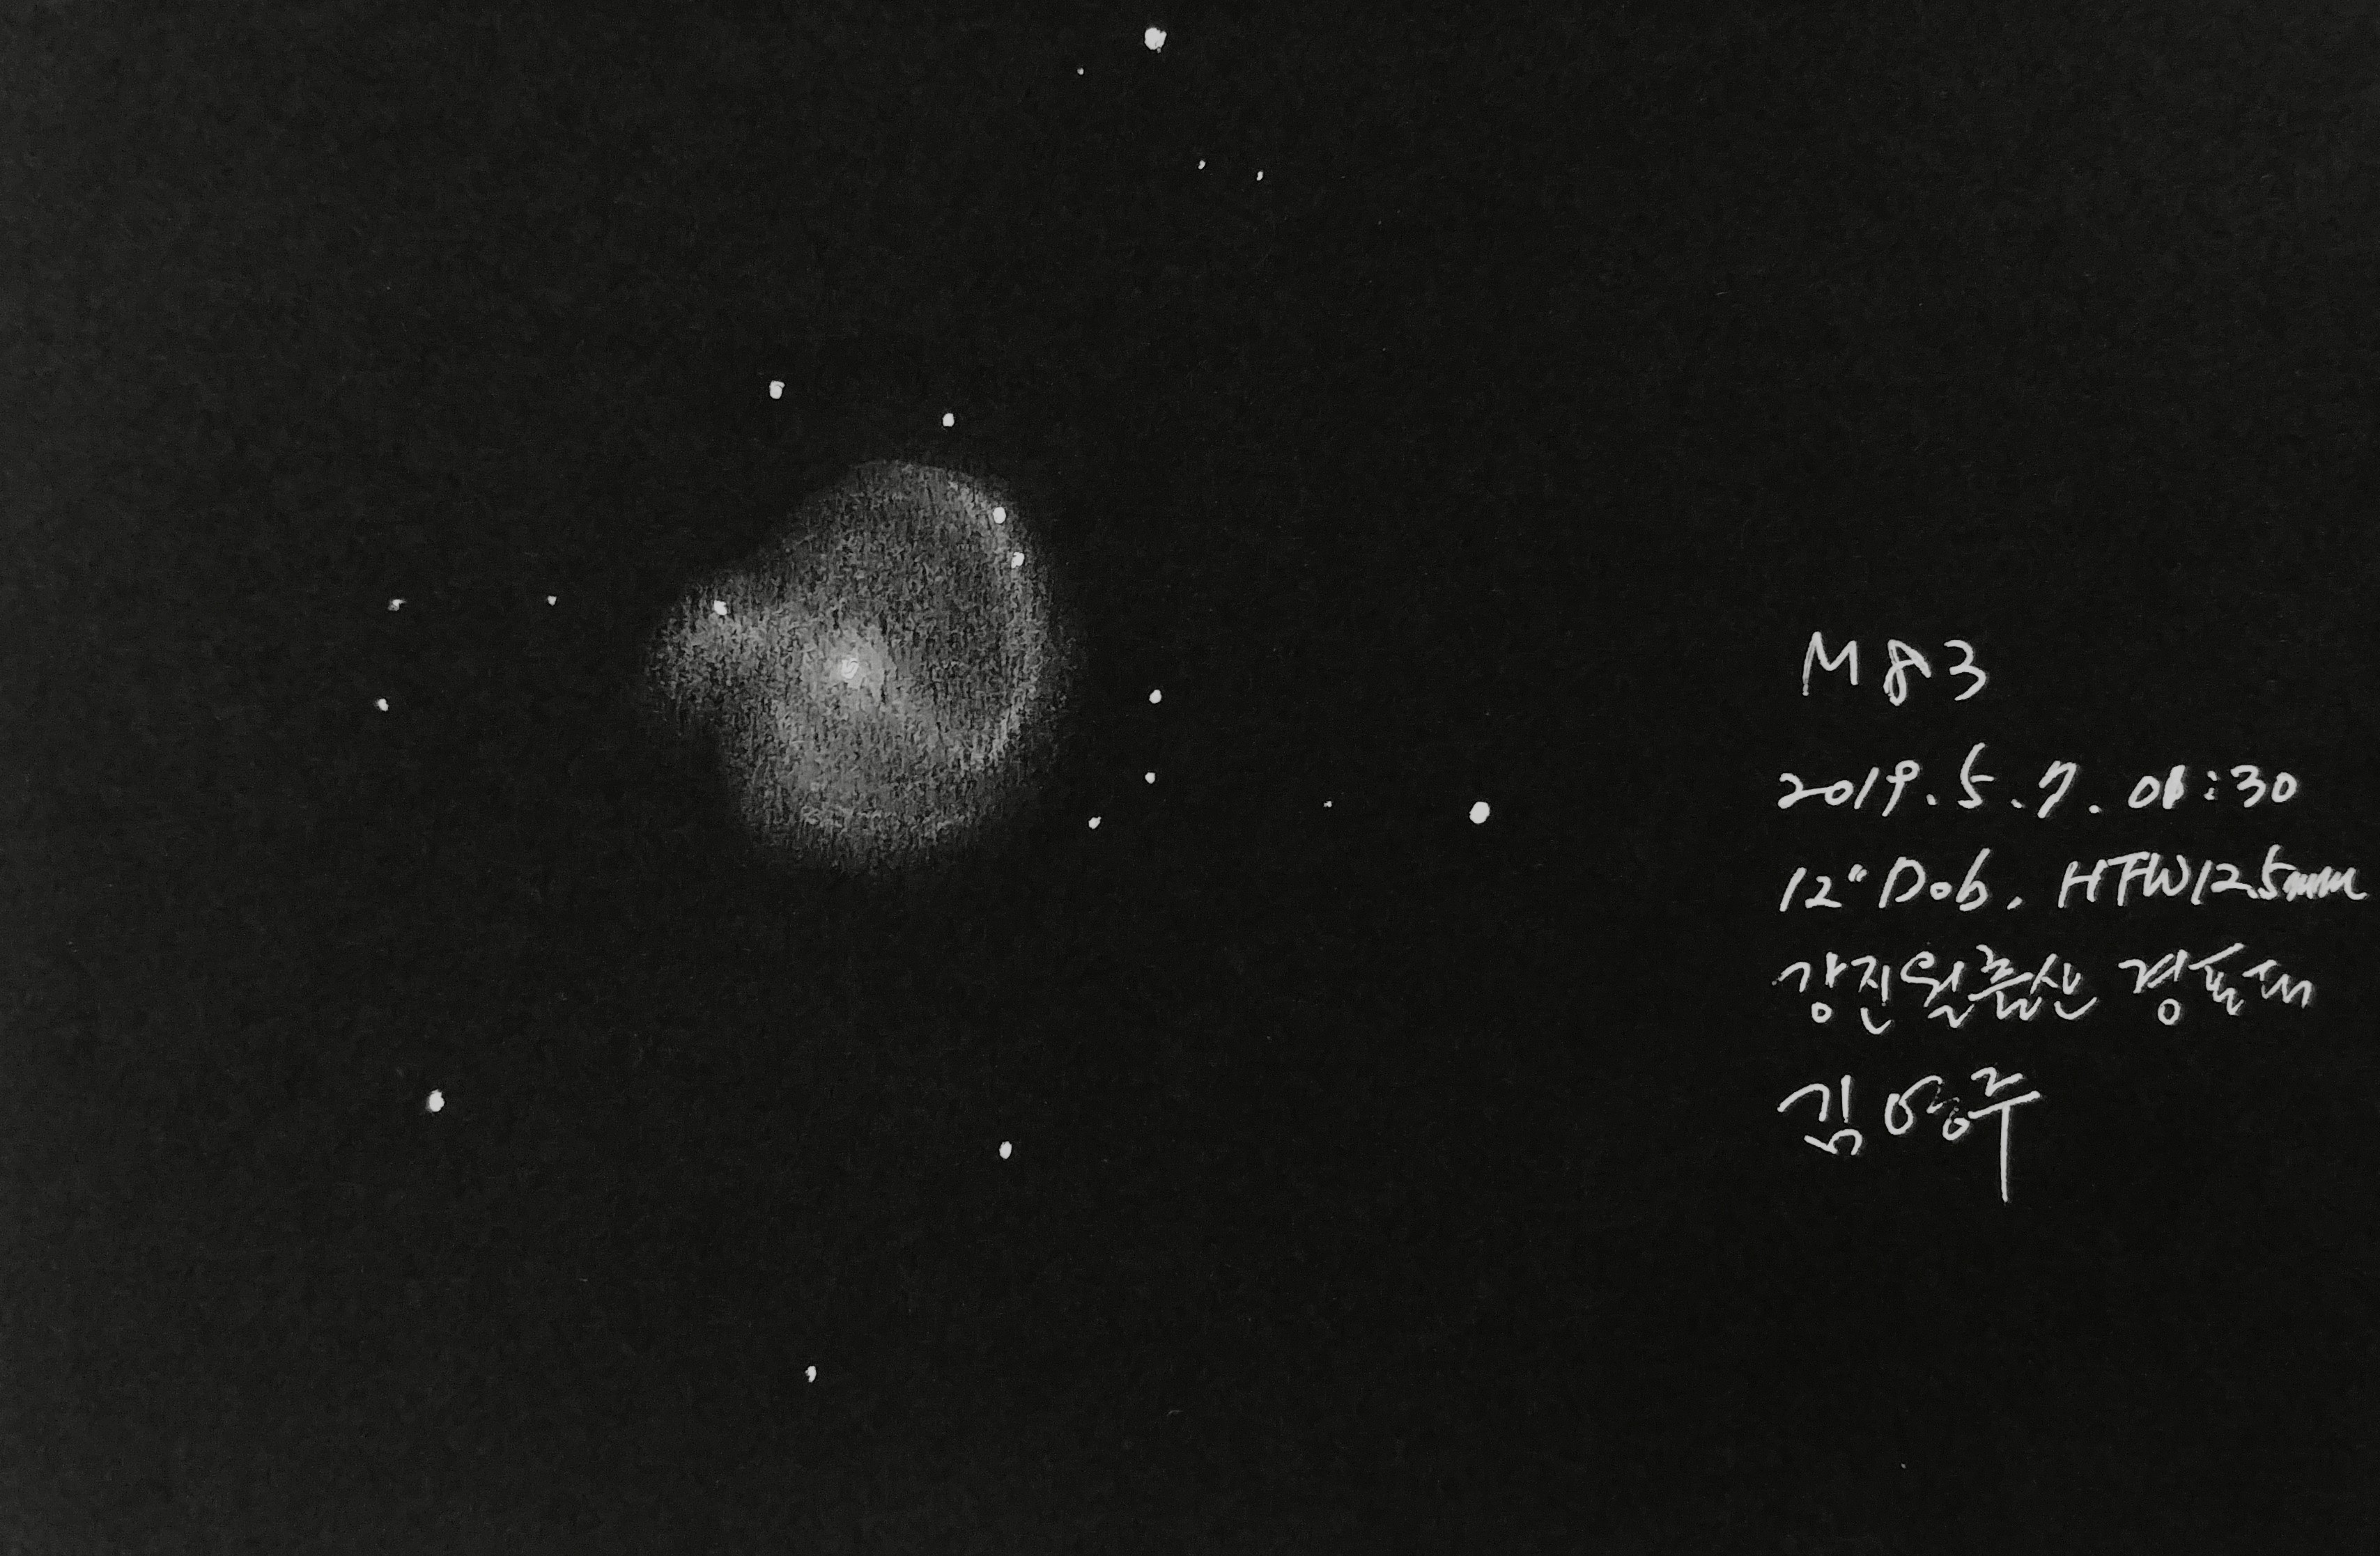 M83
2019.5.7. 01:30
12" Dob, HTW12.5mm
강진월출산 경포대
김영주